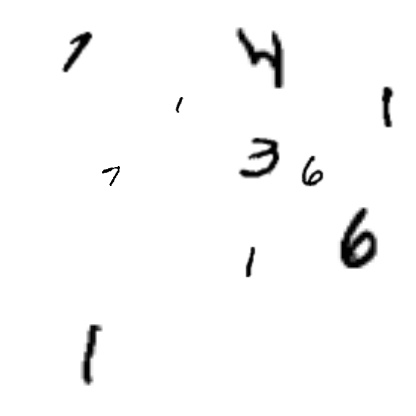 7 4
1 1
7 3 6
1 6
1